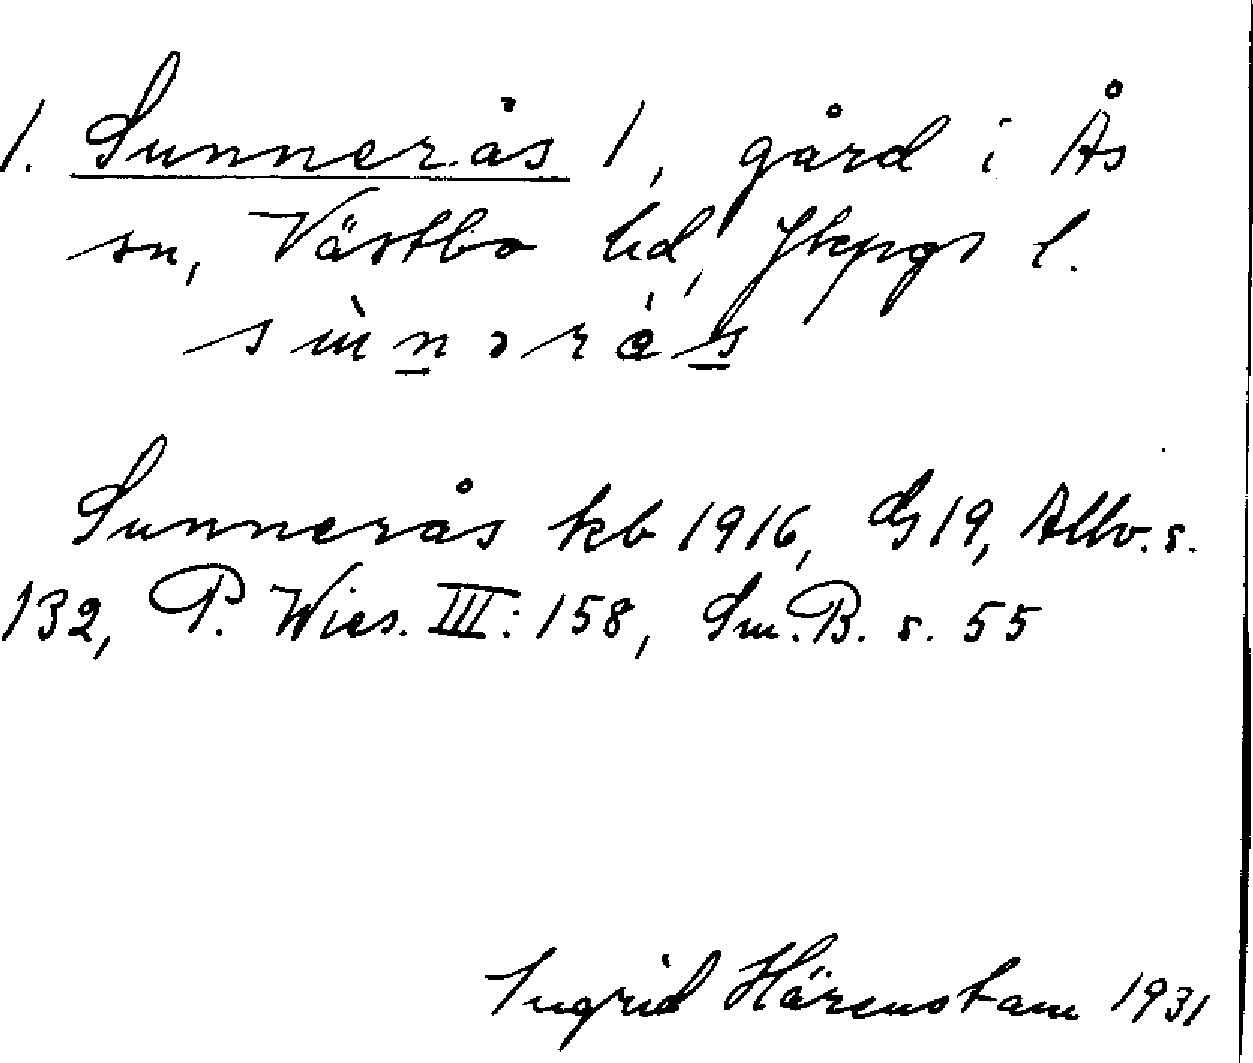 1. Sunnerås 1, gård i Ås
sn, Västbo hd, Jkpgs l.
sùnərás
Sunnerås kb 1916, G19, Allv. s.
132, P. Wies. III: 158, Sm. B. s. 55
Ingrid Härenstam 1931